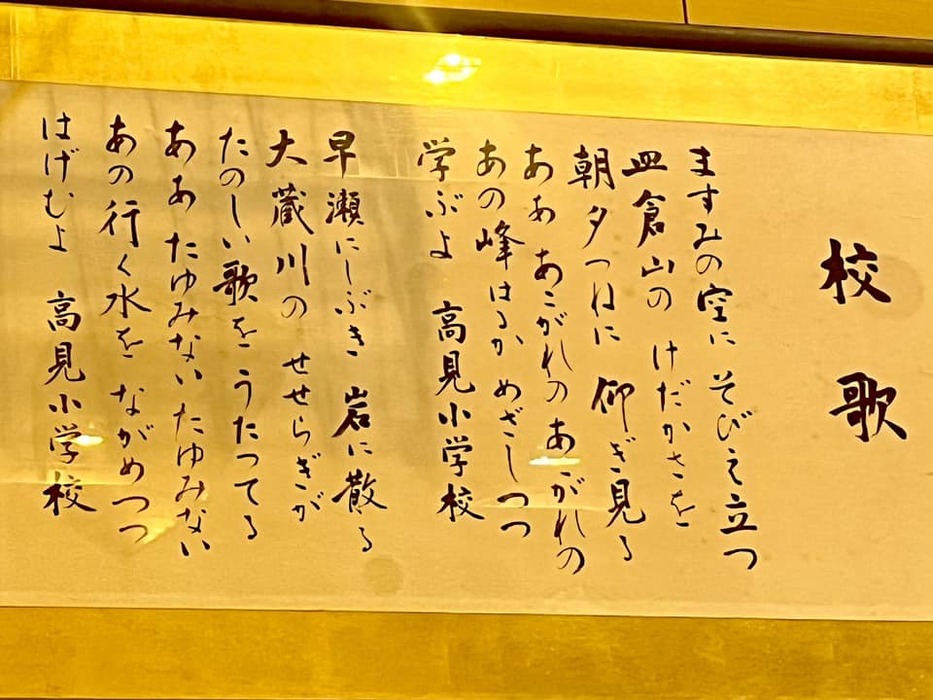 校歌
ますみの空に そびえ立つ
皿倉山の けだかさを
朝夕つねに 仰ぎ見る
ああ あこがれの あこがれの
あの峰はるか めざしつつ
学ぶよ 高見小学校
早瀬にしぶき 岩に散る
大蔵川の せせらぎが
たのしい歌を うたつてる
ああ たゆみない たゆみない
あの行く水を ながめつつ
はげむよ 高見小学校